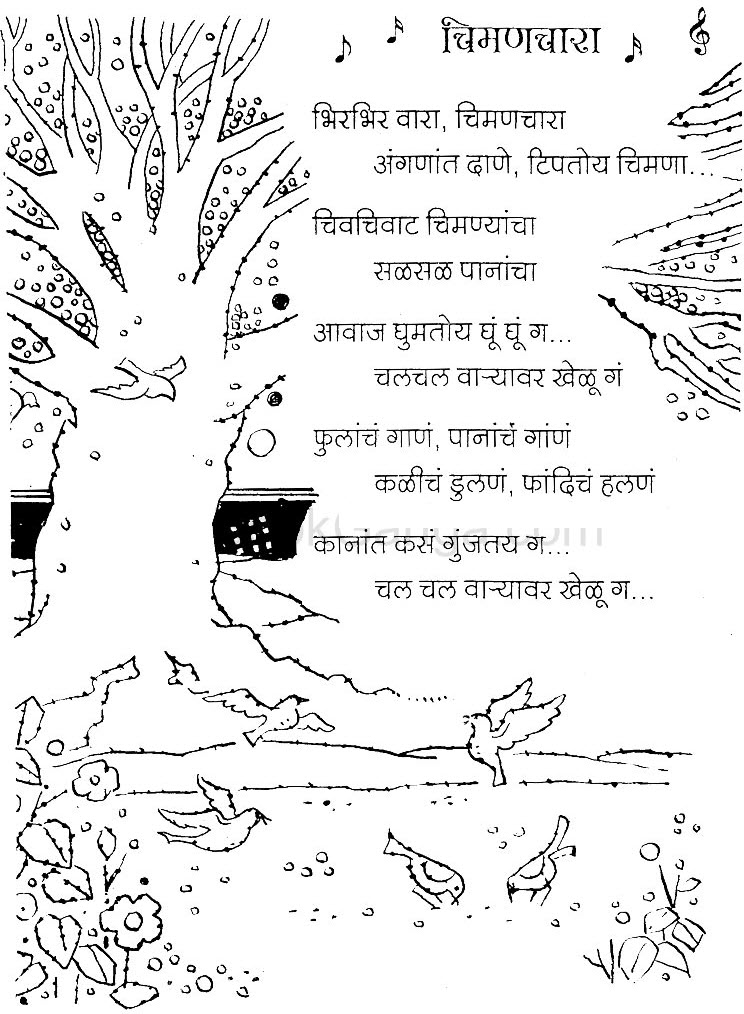 चिमणचारा
भिरभिर वारा, चिमणचारा
अंगणांत दाणे, टिपतोय चिमणा...
चिवचिवाट चिमण्यांचा
सळसळ पानांचा
आवाज घुमतोय घूं घूं ग...
चलचल वाऱ्यावर खेळू गं
फुलांचं गाणं, पानांचं गांणं
कळीचं डुलणं, फांदिचं हलणं
कानांत कसं गुंजतय ग...
चल चल वाऱ्यावर खेळू ग...